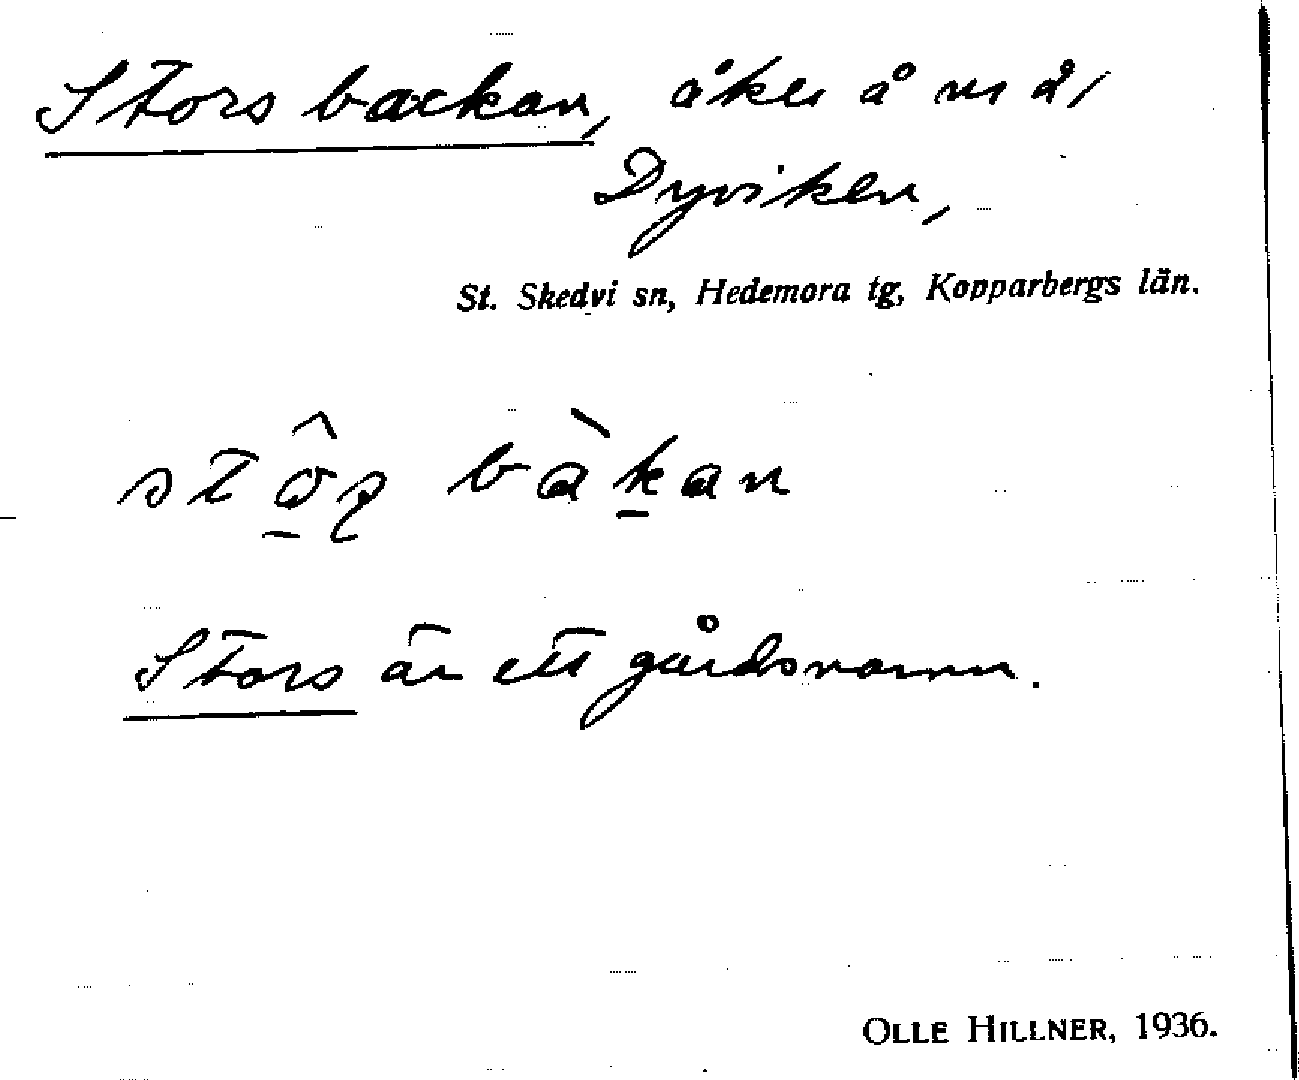 Stors backan, åker å m å /
Dyviken,
St. Skedvi sn, Hedemora tg, Kopparbergs län.
bàkan
Stors är ett gårdsnamn.
OLLE HILLNER, 1936.